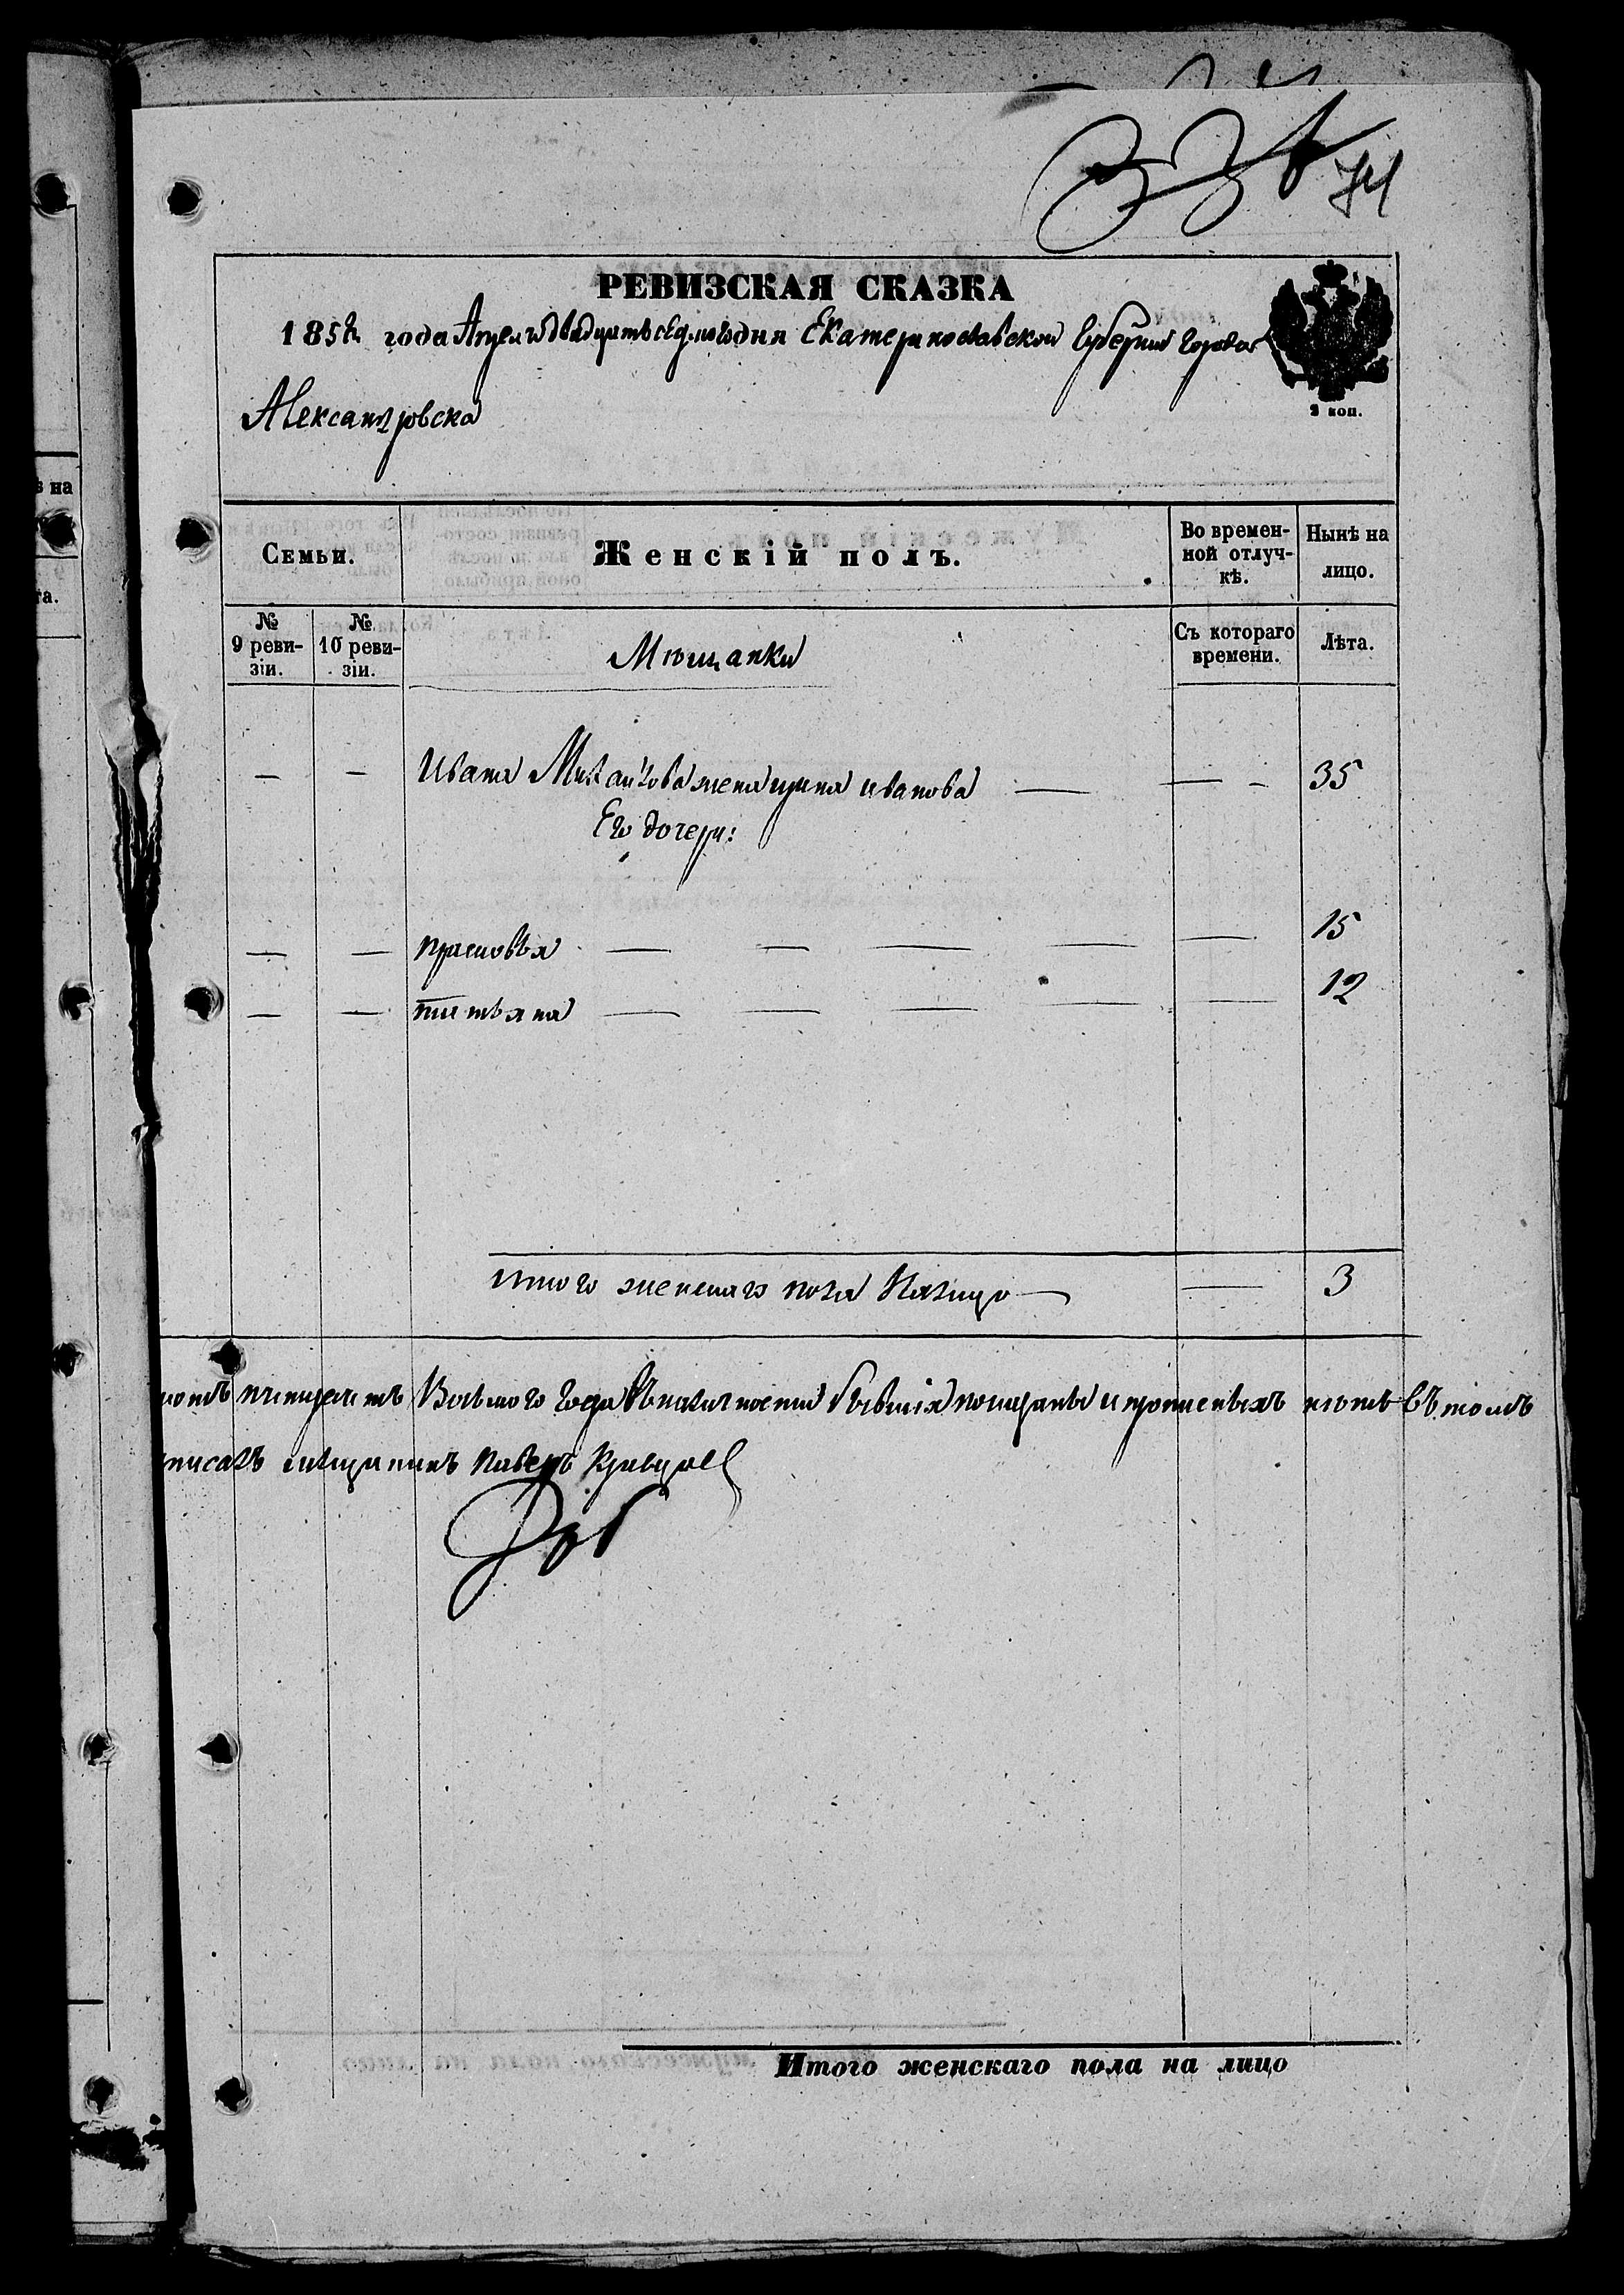 74
РЕВИЗСКАЯ СКАЗКА
1858 года Апреля двадцать седмого дня Екатеринославской Губернии города
Александровска
2 коп.
Семьи. Женскій полъ. Во времен-ной отлуч-кѣ. Ныиѣ на лицо.
№ 9 реви-зіи. № 10 реви-зіи. Мѣщанки Съ котораго времени. Лѣта.
— — Ивана Михайлова жена ирина иванова — — - 35
Его дочери:
— — прасковья — — — — — 15
— — татьяна — — — — — 12
итого женскаго пола Налицо — — 3
Всѣмого года въналичности бывшія показаны ипропшеныхъ нѣтъ Въ томъ
писалъ мѣщанинъ Павелъ Кравцовъ
Итого женскаго пола на лицо